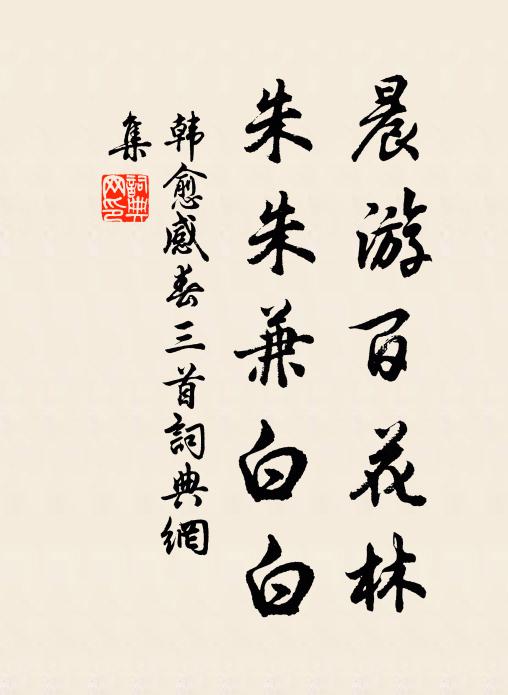 晨游百花林
朱朱兼白白
韩愈感春三首詞典網
集
詞典網印